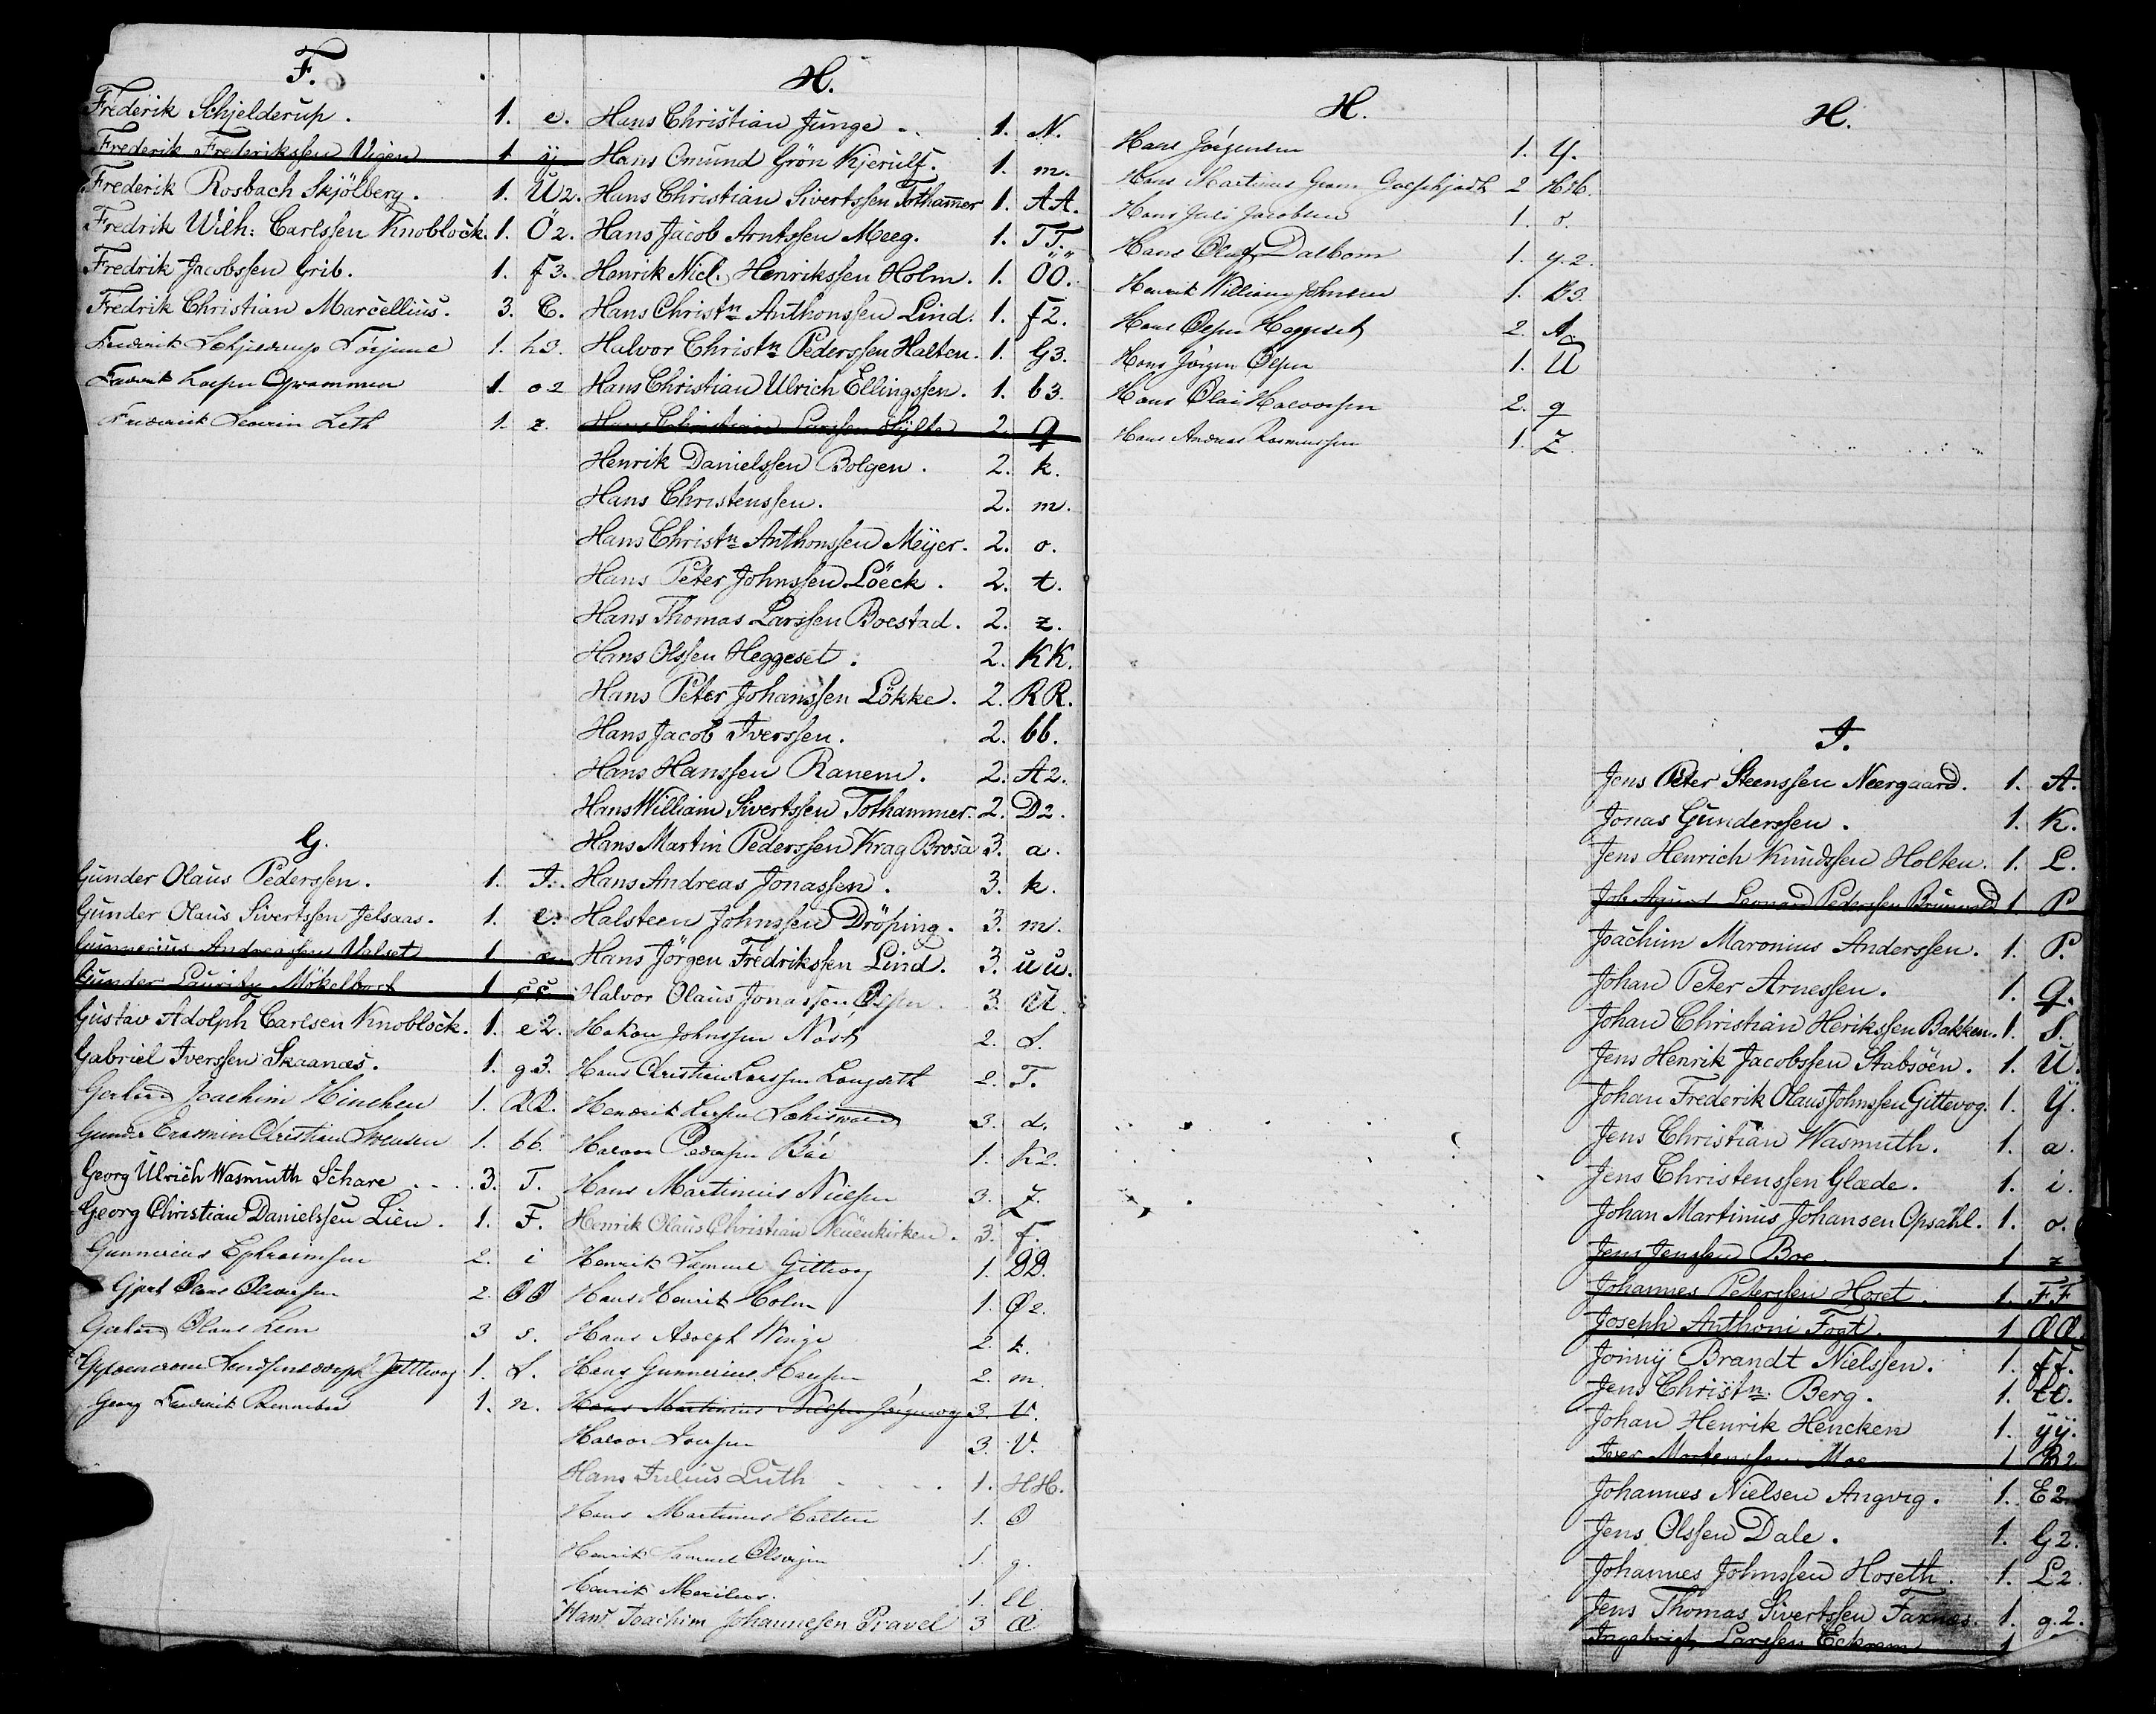 F.
Frederik Schjelderup. 1. e.
Frederik Frederikssen Vigen 1 ÿ
Frederik Rosbach Skjölberg. 1. U2.
Fredrik Wilh: Carlssen Knoblock. 1. Ö2.
Fredrik Jacobssen Grib. 1. f3.
Fredrik Christian Marcellius. 3. C.
Frederik Schjelderup 1. h3.
1. o2
Frederik Severin Leth 1. z.
G.
Gunder Olaus Pederssen. 1. I.
Gunder Olaus Sivertssen Jelsaas. 1. e.
Gunnerius Andreassen Valset 1 æ
Gunder Lauritz Mökelbost 1 çç
Gustav Adolph Carlsen Knoblock. 1. e2.
Gabriel Iverssen Skaanæs. 1. g3.
Gerhard Joachim Hinchen 1. QQ.
Erasmin Christian Svensen 1. bb.
Georg Ulrich Wasmuth Schare 3. T.
Georg Christian Danielssen Lien. 1. F.
Gunnerius Ephraimsen 2. i
Gjert Olaus Olaussen 2. OO
Gerhard Olaus Lem 3 s.
1. L.
Georg Frederik Rennebu 1. n.
H.
Hans Christian Junge 1. N.
Hans Omund Grön Kjerulf. 1. m.
Hans Christian Sivertssen Tothammer 1. AA.
Hans Jacob Arntssen Meeg. 1. TT.
Henrik Nicl. Henrikssen Holm. 1. ÖÖ.
Hans Christn Anthonssen Lind. 1. f2.
Halvor Christn Pederssen Halten. 1. G3.
Hans Christian Ulrich Ellingssen. 1. b3.
Hans Christian Larssen Hylte 2. Q
Henrik Danielssen Bolgen. 2. k.
Hans Christenssen. 2. m.
Hans Christn Anthonssen Meÿer. 2. o.
Hans Peter Johnssen Löeck. 2. t.
Hans Thomas Larssen Boestad. 2. z.
Hans Olssen Heggeset. 2. KK.
Hans Peter Johanssen Lökke. 2. RR.
Hans Jacob Iverssen. 2. bb.
Hans Hanssen Ranem. 2. A2.
Hans William Sivertssen Tothammer. 2. D2.
Hans Martin Pederssen Krag Brosa 3. a.
Hans Andreas Jonassen. 3. k.
Halsteen Johnssen Dröping. 3. m.
Hans Jörgen Fredrikssen Lind. 3. uu.
Halvor Olaus Jonassen Olsen 3. U.
Hakon Johnssen Nost 2. L.
Hans Christian Larssen Langseth 2. T.
Hendrik Larsen 3. d.
Halvor Pedersen Böe 1. K2.
Hans Martinius Nielsen 3. Z.
Henrik Olaus Christian Neuenkirken. 3. f.
Henrik Samuel Gittvog 1. DD.
Hans Henrik Holm 1. Ø2.
Hans Adolph Winge 2. k.
Hans Gunnerius Hansen 2. m.
Hans Martinius Nielsen Jörgenvog 3. V.
Halvor Larsen 3. V.
Hans Julius Luth 1. HH.
Hans Martinus Halten 1. O
Henrik Samuel Olsen 1. g.
Henrik 1. ll.
Hans Joachim Johannesen Pravel 3 Æ
H.
Hans Jörgensen 1. Y.
Hans Martinus Gram 2 HH.
Hans Juli Jacobsen 1. o.
Hans Oluf Dalbom 1. y.2.
Henrik William Johnsen 1. B3.
Hans Olsen Heggeset 2. A
Hans Jörgen Olsen 1. U
Hans Olai Halvorsen 2. q
Hans Andreas Rasmussen 1. Z.
H.
I.
Jens Peter Steenssen Neergaard. 1. A.
Jonas Gunderssen. 1. K.
Jens Henrich Knudssen Holten. 1. L.
Leonard Pederssen Brünwald 1 P
Joachim Maronius Anderssen. 1. P.
Johan Peter Arnessen. 1. Q.
Johan Christian Herikssen Bakken. 1. S.
Jens Henrik Jacobssen Stabsöen. 1. U.
Johan Frederik Olaus Johnssen Gittevog. 1. Y.
Jens Christian Wasmuth. 1. a.
Jens Christenssen Glæde. 1. i.
Johan Martinus Johansen Opsahl. 1. o.
Jens Jenssen Boe 1 z
Johannes Peterssen Hoset. 1. FF
Joseph Anthoni Fogt. 1 ÆÆ.
Jonnÿ Brandt Nielssen. 1. ff.
Jens Christn. Berg. 1. tt.
Johan Henrik Hencken 1. ÿÿ.
Iver Mortenssen Moe 1 B2
Johannes Nielsen Angvig. 1. E2.
Jens Olssen Dale. 1. G2.
Johannes Johnssen Hoseth. 1. L2.
Jens Thomas Sivertssen Faxnæs. 1. g.2.
Ingebrigt Larssen Eckrem 1